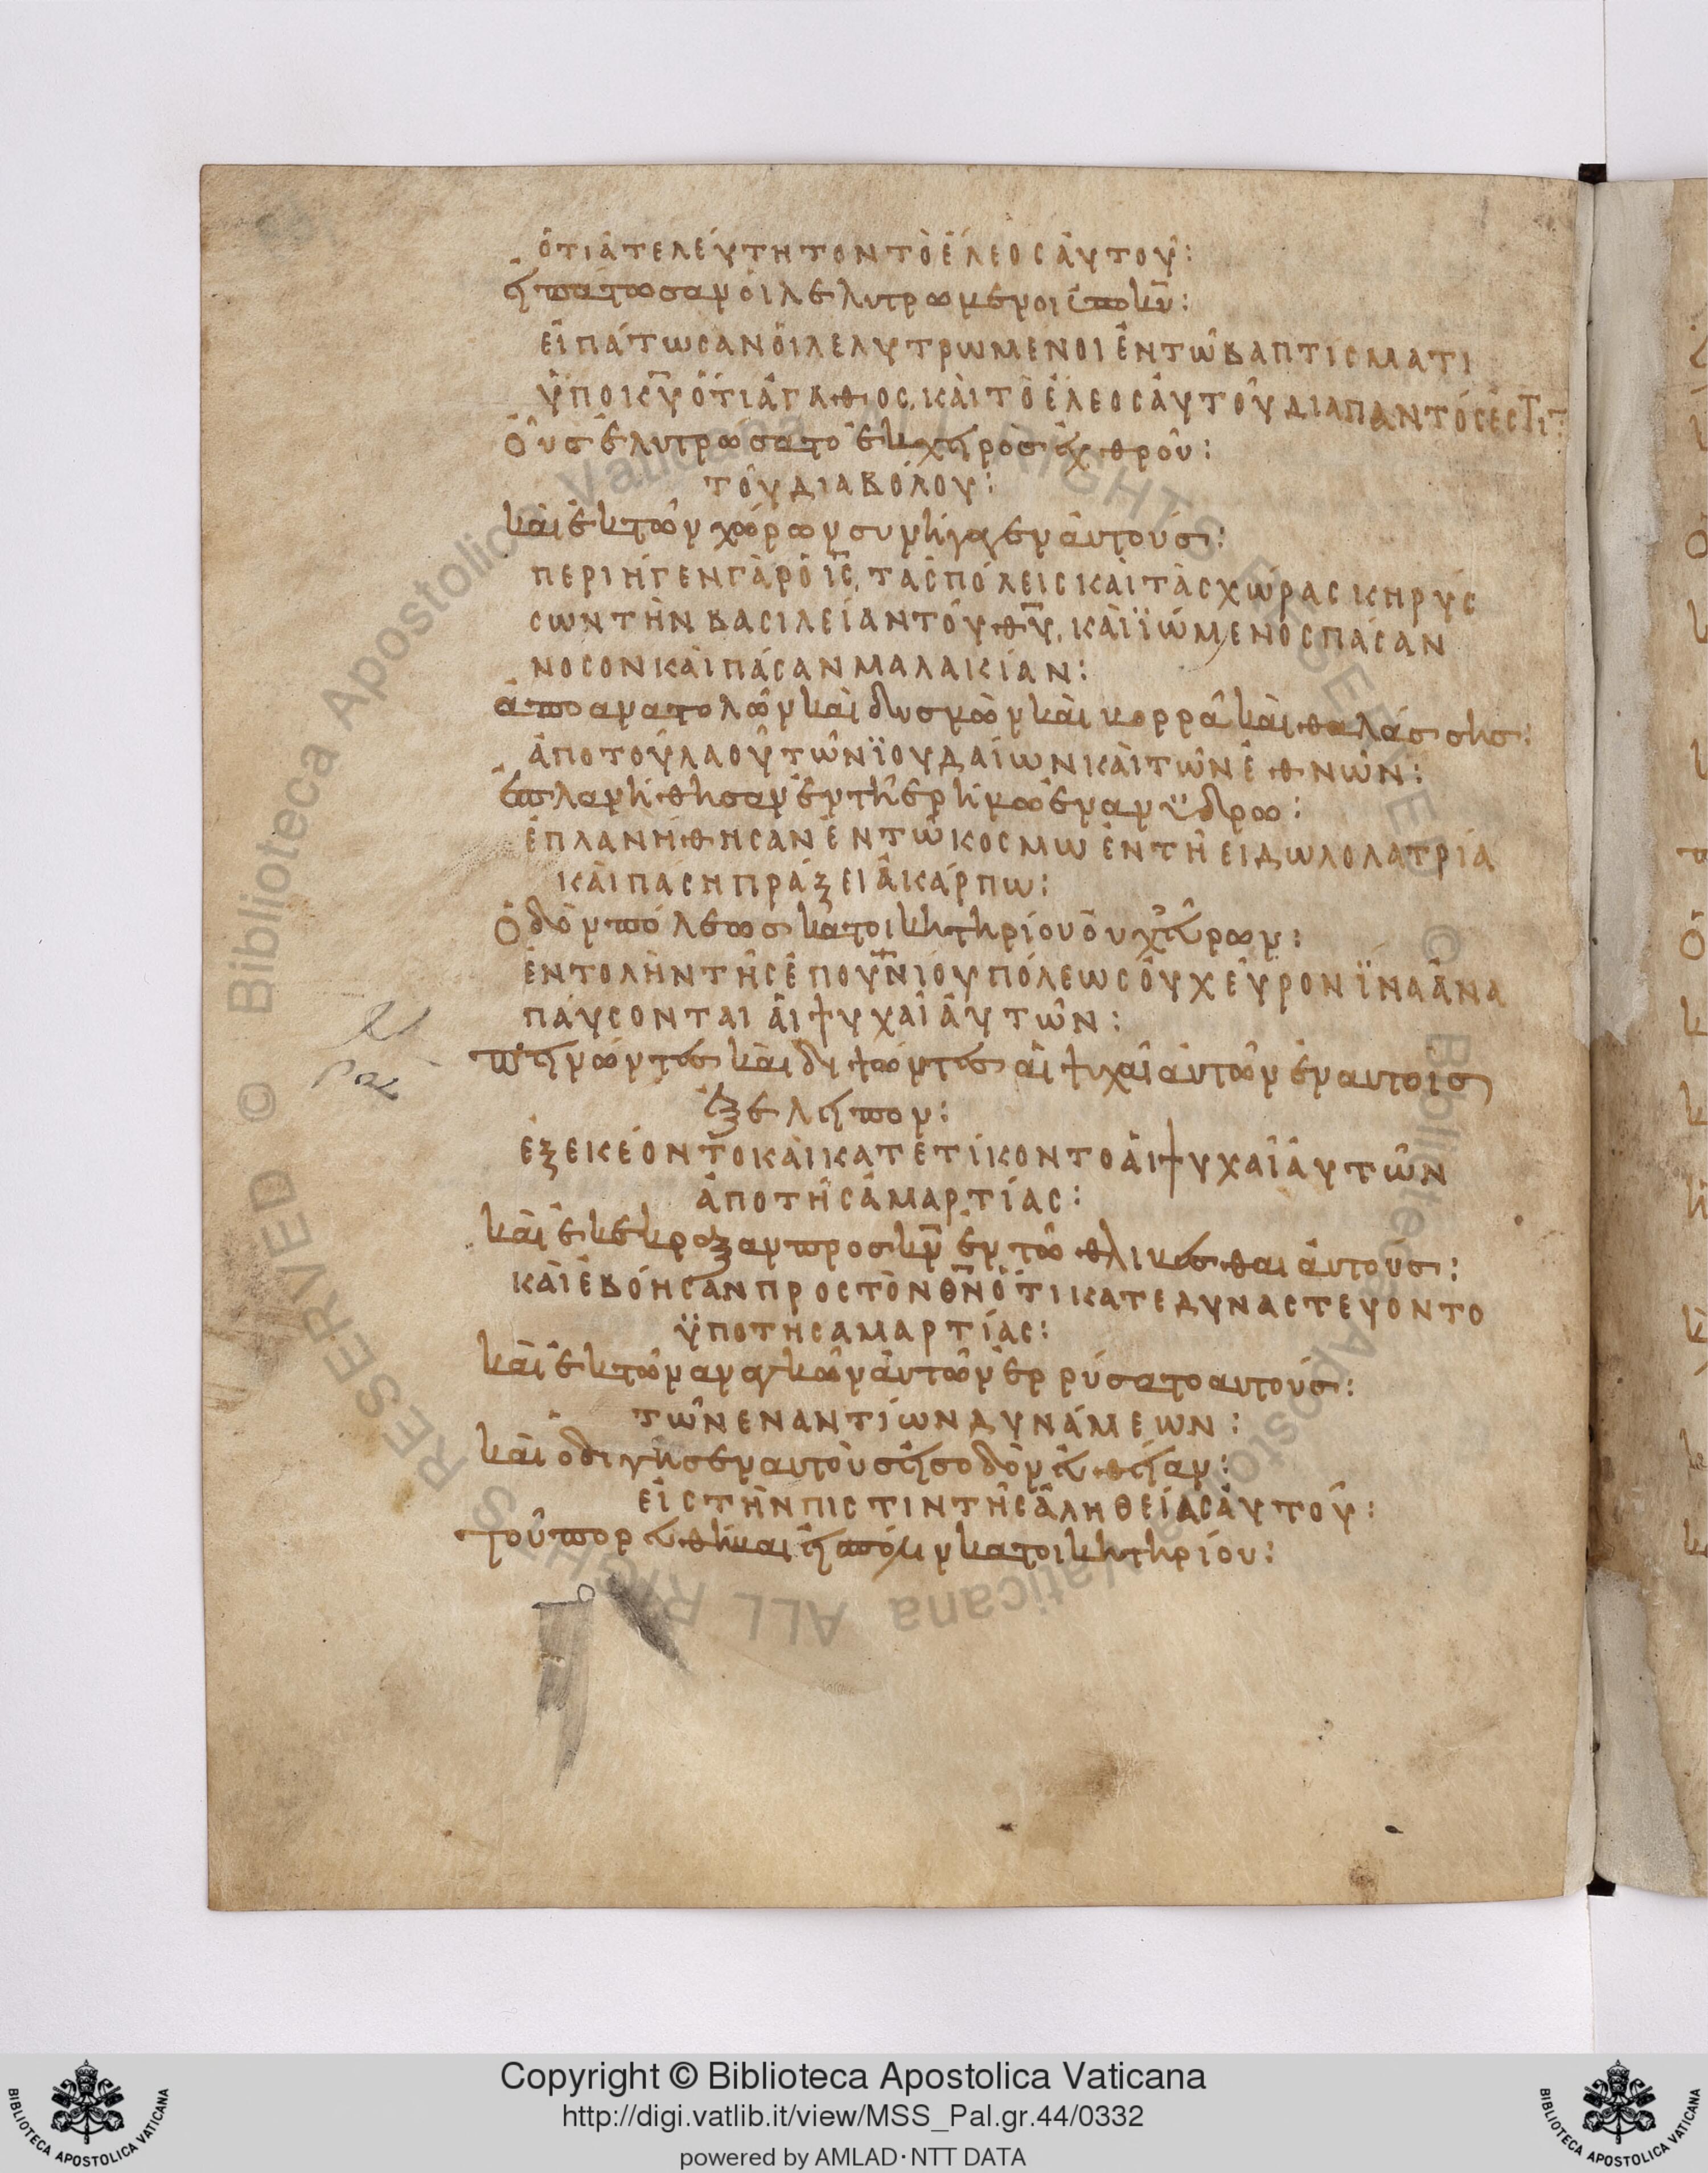 ὅτι ἀτελεύτητον τὸ ἔλεος αὐτοῦ:
εἰπάτωσαν οἱ λελυτρωμένοι ὑπο κυ̅:
εἰπάτωσαν οἱ λελυτρωμενοι ἐν τῶ βαπτισματι
ὑπο ικ̅υ ὅτι ἀγαθος, καὶ τὸ ἔλεος αὐτοῦ διαπαντός ἐστι:
Οὓς ἐλυτρώσατο ἐκ χειρὸς ἐχθροῦ:
τοῦ διαβόλου:
καὶ ἐκ τῶν χώρων συνήγαγεν αὐτούς:
περιήγεν γὰρ ὁ ι̅ς̅, τὰς πόλεις καὶ τὰς χώρας κηρύς
σων τὴν βασιλείαν τοῦ θ̅υ̅, καὶ ἰώμενος πάσαν
νοσον καὶ πάσαν μαλακίαν:
ἀπο ανατολῶν καὶ δυσμῶν καὶ βορρᾶ καὶ θαλάσσης:
ἀπο τοῦ λαοῦ τῶν ϊουδαίων καὶ τῶν ἐθνῶν:
ἐπλανήθησαν ἐν τῆ ἐρήμω ἐν ανύδρω:
ἐπλανήθησαν ἐν τῶ κοσμω ἐν τῆ ειδωλολατρία
καὶ πάση πράξει ἀκάρπω:
Ὁδὸν πόλεως κατοικητηρίου οὐχ εὗρων:
ἐντολὴν τῆς ἐπουνίου πόλεως οὐχ εὗρον ϊνα ἀνα
παύσονται αἱ ψυχαὶ αὐτῶν:
πεινώντες καὶ διψώντες αἱ ψυχαὶ αὐτῶν ἐν αυτοίς
ἐξέλειπον:
ἐξεκέοντο καὶ κατετίκοντο αἱ ψυχαὶ αὐτῶν
ἀπο τῆς ἁμαρτίας:
καὶ ἐκέκραξαν προς κν̅ ἐν τῶ θλιβεσθαι αὐτους:
καὶ ἐβόησαν προς τὸν θν̅ ὅτι κατεδυναστευοντο
ὑπο της αμαρτίας:
καὶ ἐκ τῶν αναγκῶν αὐτῶν ἐρρύσατο αυτούς:
τῶν εναντίων δυνάμεων:
καὶ ὁδιγησεν αυτοὺς εἰς οδὸν εὐθείαν:
εἰς τὴν πιστιν τῆς ἀληθείας αὐτοῦ:
τοῦ πορευθήναι εἰς πόλιν κατοικητηρίου:
Copyright © Biblioteca Apostolica Vaticana
http://digi.vatlib.it/view/MSS_Pal.gr.44/0332
powered by AMLAD·NTT DATA
BIBLIOTECA APOSTOLICA VATICANA
BIBLIOTECA APOSTOLICA VATICANA